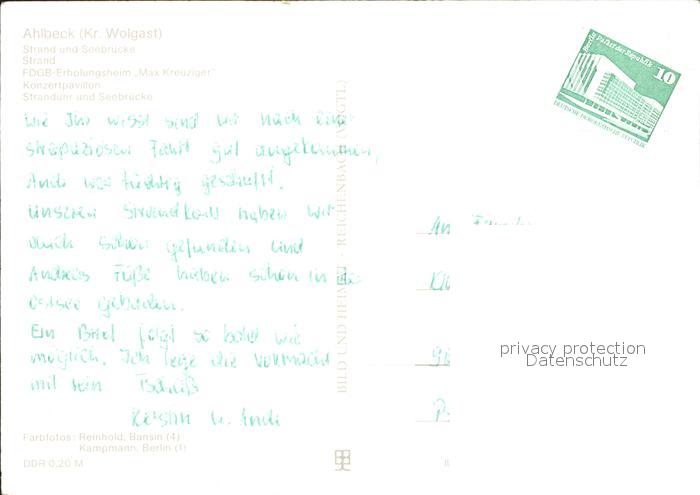 Ahlbeck (Kr. Wolgast)
Strand und Seebrücke
Strand
FDGB-Erholungsheim „Max Kreuziger"
Konzertpavillon
Stranduhr und Seebrücke
Wie Ihr wisst sind wir nach einer
strapaziösen Fahrt gut angekommen,
Andi war tüchtig geschafft.
Unseren Strandkorb haben wir
auch schon gefunden und
Andreas Füße haben schon in der
Ostsee gebaden.
Ein Brief folgt so bald wie
möglich. Ich lege die Vollmacht
mit rein Tschüß
Kerstin u. Andi
Farbfotos: Reinhold, Bansin (4)
Kampmann, Berlin (1)
DDR 0,20 M
BILD UND HEIMAT REICHENBACH (VOGTL)
Berlin, Palast der Republik
10
DEUTSCHE DEMOKRATISCHE REPUBLIK
An
privacy protection
Datenschutz